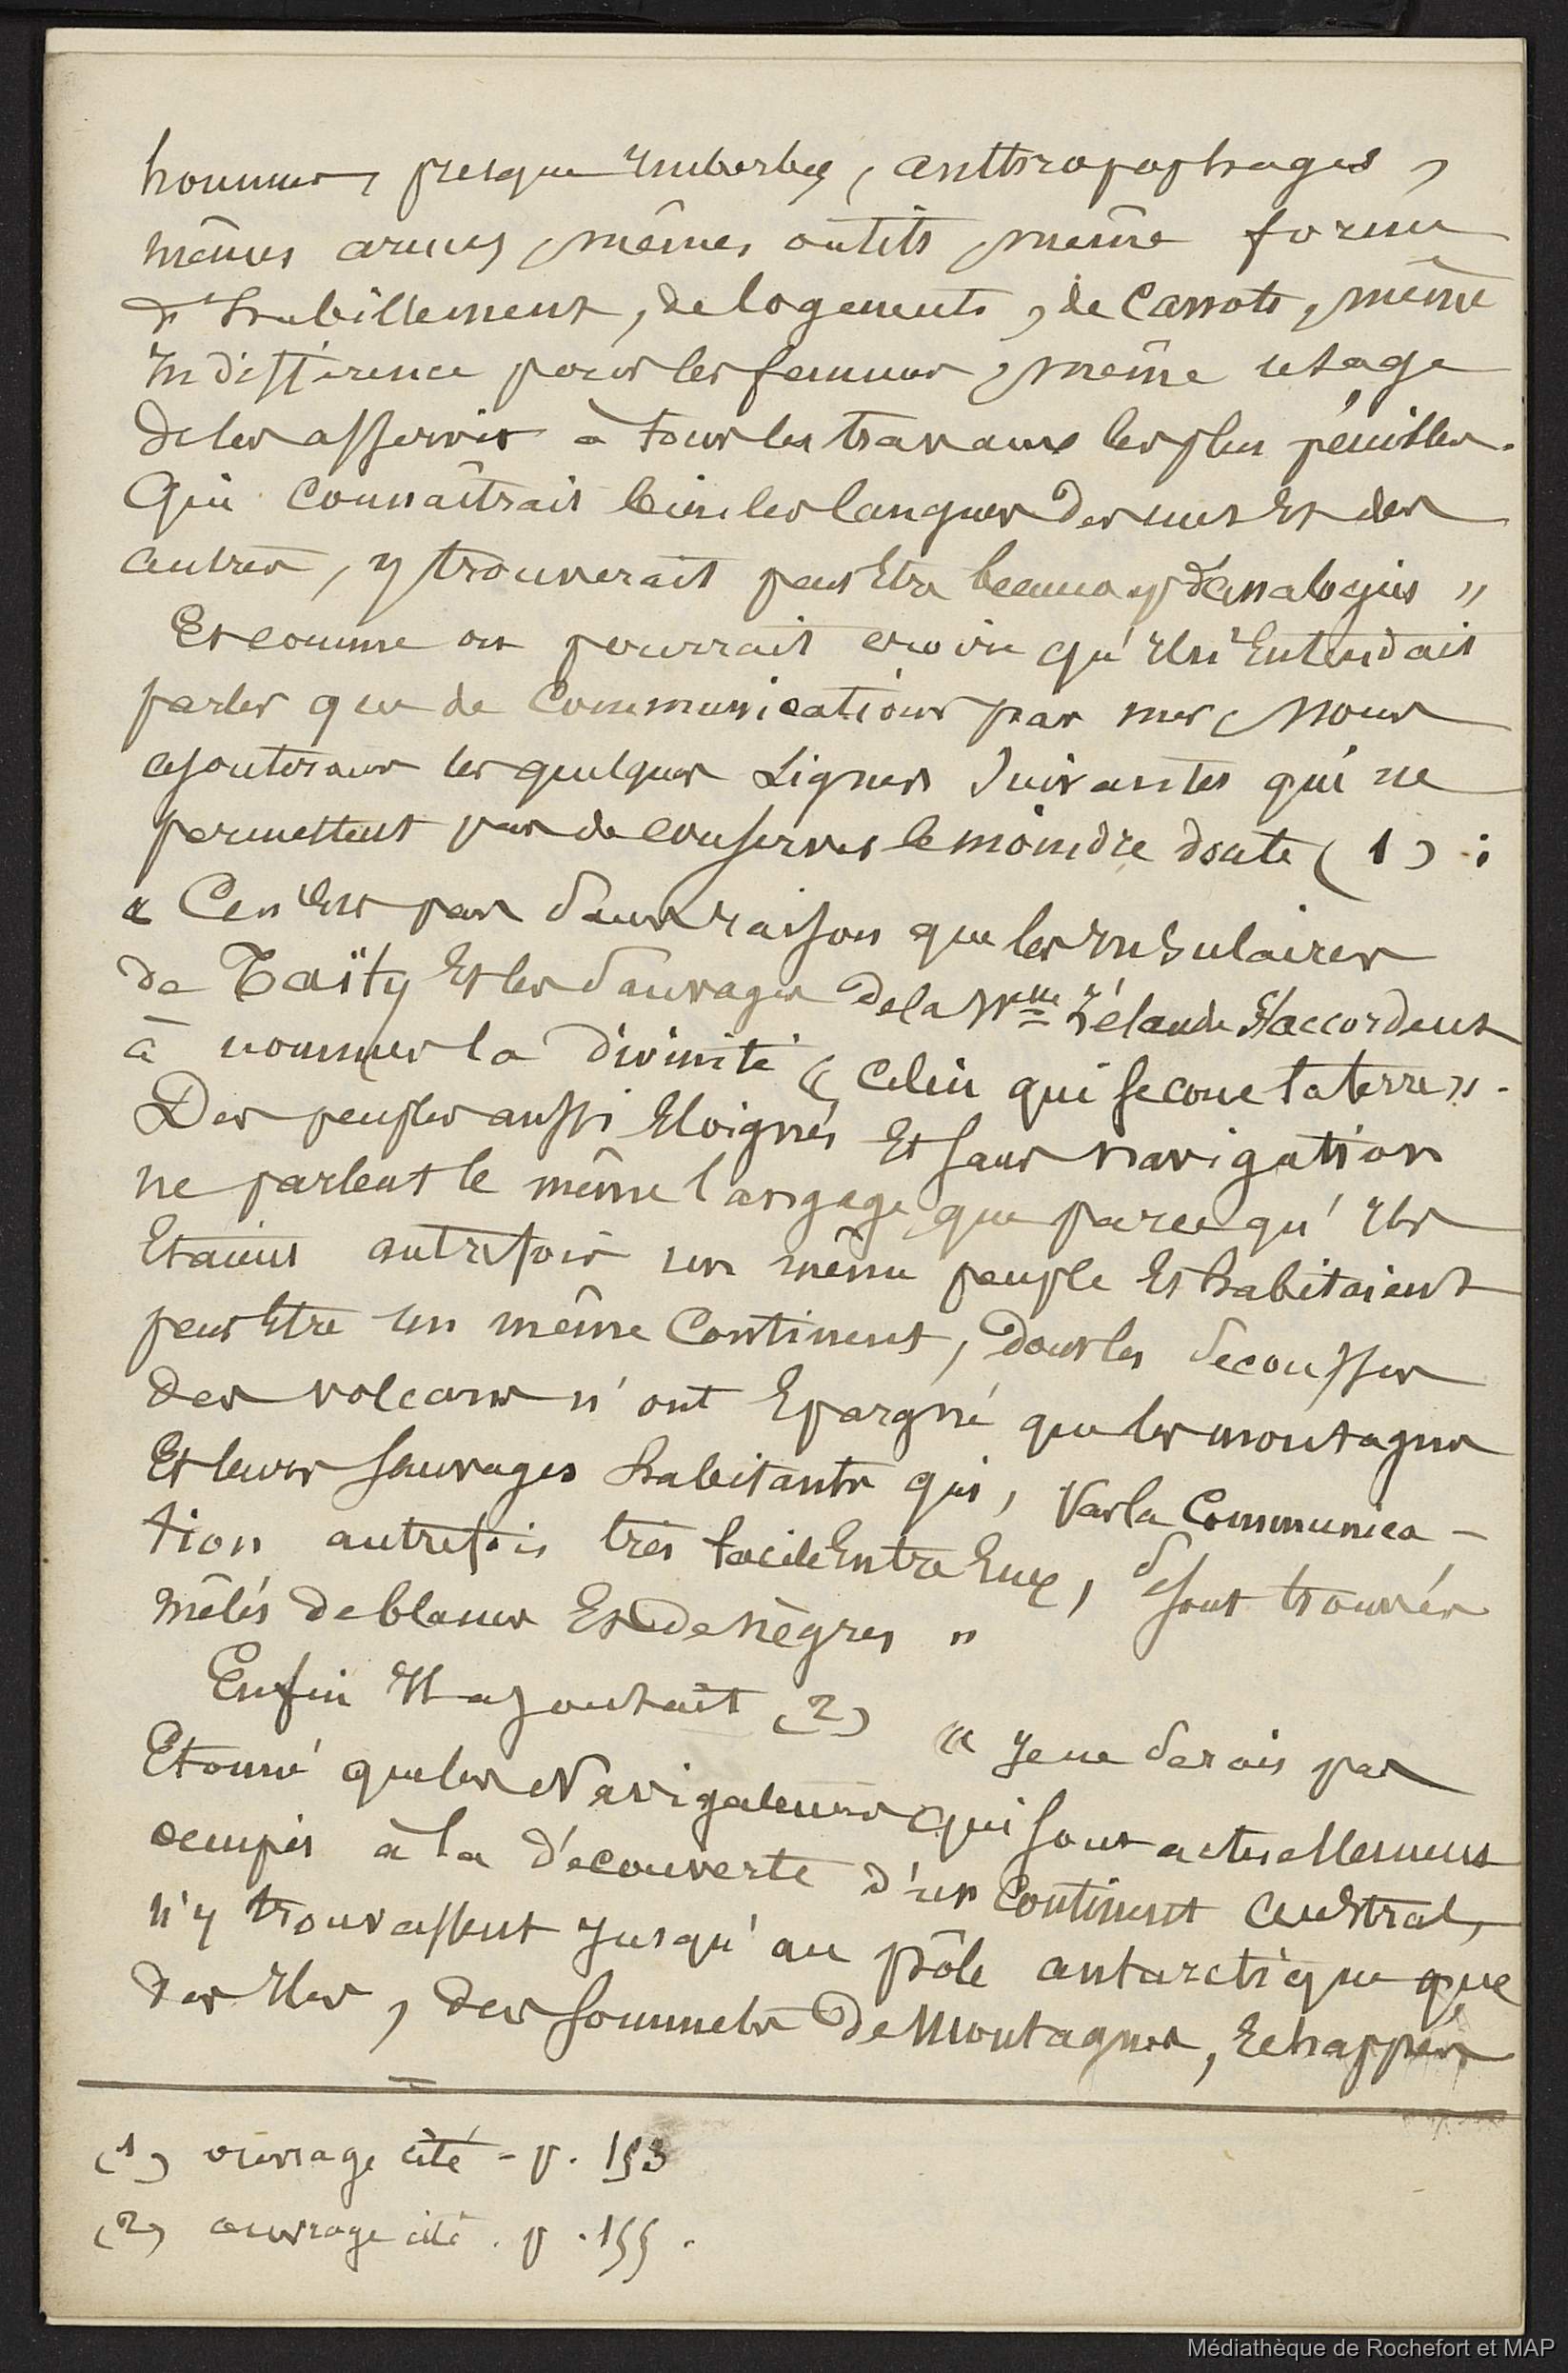 hommes, presque imberbes, anthropophages,
mêmes armes, mêmes outils, même forme
d'habillement, de logements, de Canots, même
indifférence pour les femmes, même usage
de les asservir à tous les travaux les plus pénibles.
Qui connaîtrait bien les langues des uns Et des
autres, y trouverait peut Etre beaucoup d'analogies "
Et comme on pourrait croire qu'il n'Entendait
parler que de Communications par mer, nous
ajouterons les quelques Lignes Suivantes qui ne
permettent pas de conserver le moindre doute (1) :
« Ce n'Est pas Sans raison que les insulaires
de Taïty Et les Sauvages de la Nelle Zélande S'accordent
à nommer la divinité « Celui qui secoue la terre ».
Des peuples aussi Eloignés Et sans navigation
ne parlent le même langage que parce qu'ils
Etaient autrefois un même peuple Et habitaient
peut Etre un même Continent, dont les Secousses
des volcans n'ont Epargné que les montagnes
Et leurs sauvages habitants qui, Par la Communica-
tion autrefois très facile Entre Eux, se sont trouvés
mêlés de blancs Et de nègres "
Enfin Il ajoutait (2) « Je ne Serais pas
Etonné que les Navigateurs qui sont actuellement
occupés à la découverte d'un Continent austral,
n'y trouvassent jusqu'au pôle antarctique que
des Iles, des sommets de Montagnes, Echappés
(1) ouvrage cité - p. 153
(2) ouvrage cité . p . 155 .
Médiathèque de Rochefort et MAP